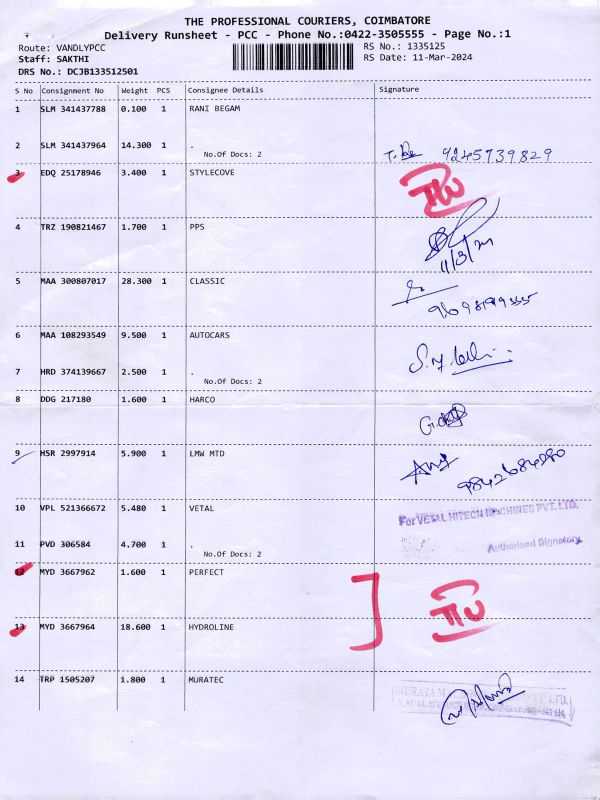 THE PROFESSIONAL COURIERS, COIMBATORE
Delivery Runsheet - PCC - Phone No.:0422-3505555 - Page No.:1
Route: VANDLYPCC
RS No.: 1335125
Staff: SAKTHI
RS Date: 11-Mar-2024
DRS No.: DCJB133512501
S No Consignment No Weight PCS Consignee Details Signature
1 SLM 341437788 0.100 1 RANI BEGAM
2 SLM 341437964 14.300 1 .
No.Of Docs: 2
9245739829
3 EDQ 25178946 3.400 1 STYLECOVE
4 TRZ 190821467 1.700 1 PPS
11/3/24
5 MAA 300807017 28.300 1 CLASSIC
6 MAA 108293549 9.500 1 AUTOCARS
7 HRD 374139667 2.500 1 .
No.Of Docs: 2
8 DDG 217180 1.600 1 HARCO
9 HSR 2997914 5.900 1 LMW MTD
9842684280
10 VPL 521366672 5.480 1 VETAL
For VETAL HITECH MACHINES PVT. LTD.
11 PVD 306584 4.700 1 .
Authorised Signatory
No.Of Docs: 2
12 MYD 3667962 1.600 1 PERFECT
13 MYD 3667964 18.600 1 HYDROLINE
14 TRP 1505207 1.800 1 MURATEC